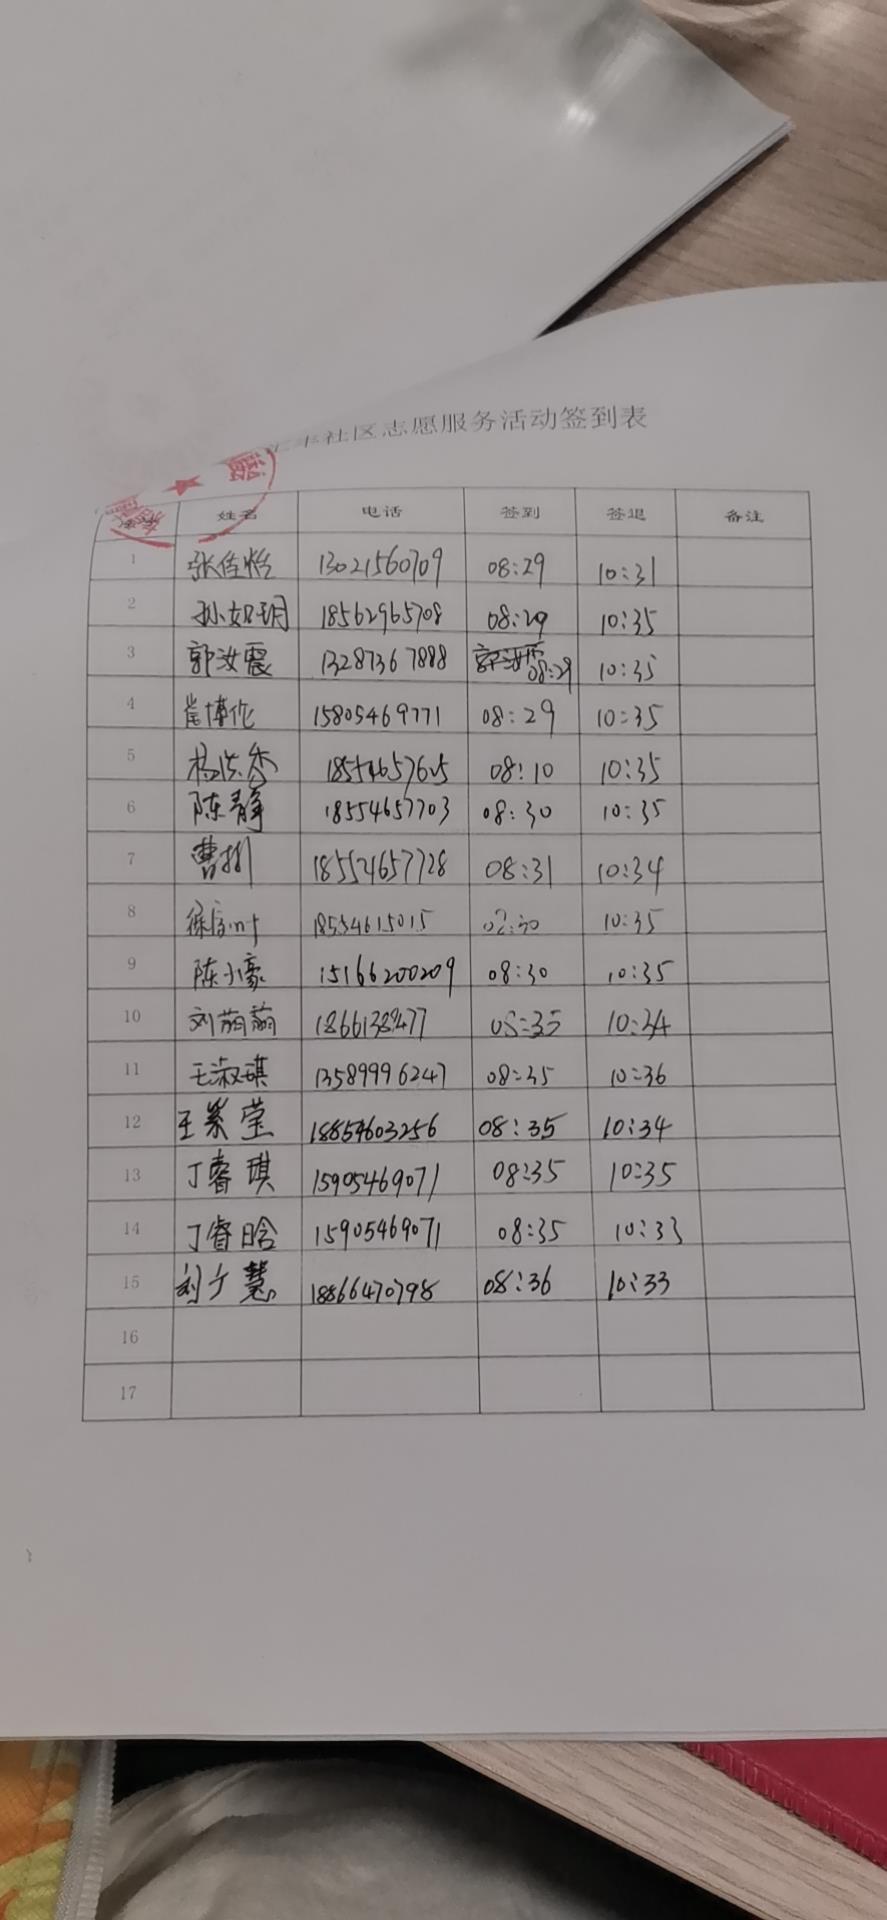 社区志愿服务活动签到表
姓名 电话 签到 签退 备注
1 张佳怡 13021560709 08:29 10:31
2 孙如玥 18562965708 08:29 10:35
3 郭汝震 13287367888 08:29 10:35
4 崔博伦 15805469771 08:29 10:35
5 10:35 08:10
6 陈静 18554657703 08:30 10:35
7 曹 18554657728 08:31 10:34
8 徐 18554615015 10:35
9 陈小豪 15166200209 08:30 10:35
10 刘萌萌 08:35 10:34
11 王淑琪 13589996247 08:35 10:36
12 王紫莹 18854603256 08:35 10:34
13 丁睿琪 15905469071 08:35 10:35
14 丁睿晗 15905469071 08:35 10:33
15 慧 18866470798 08:36 10:33
16
17